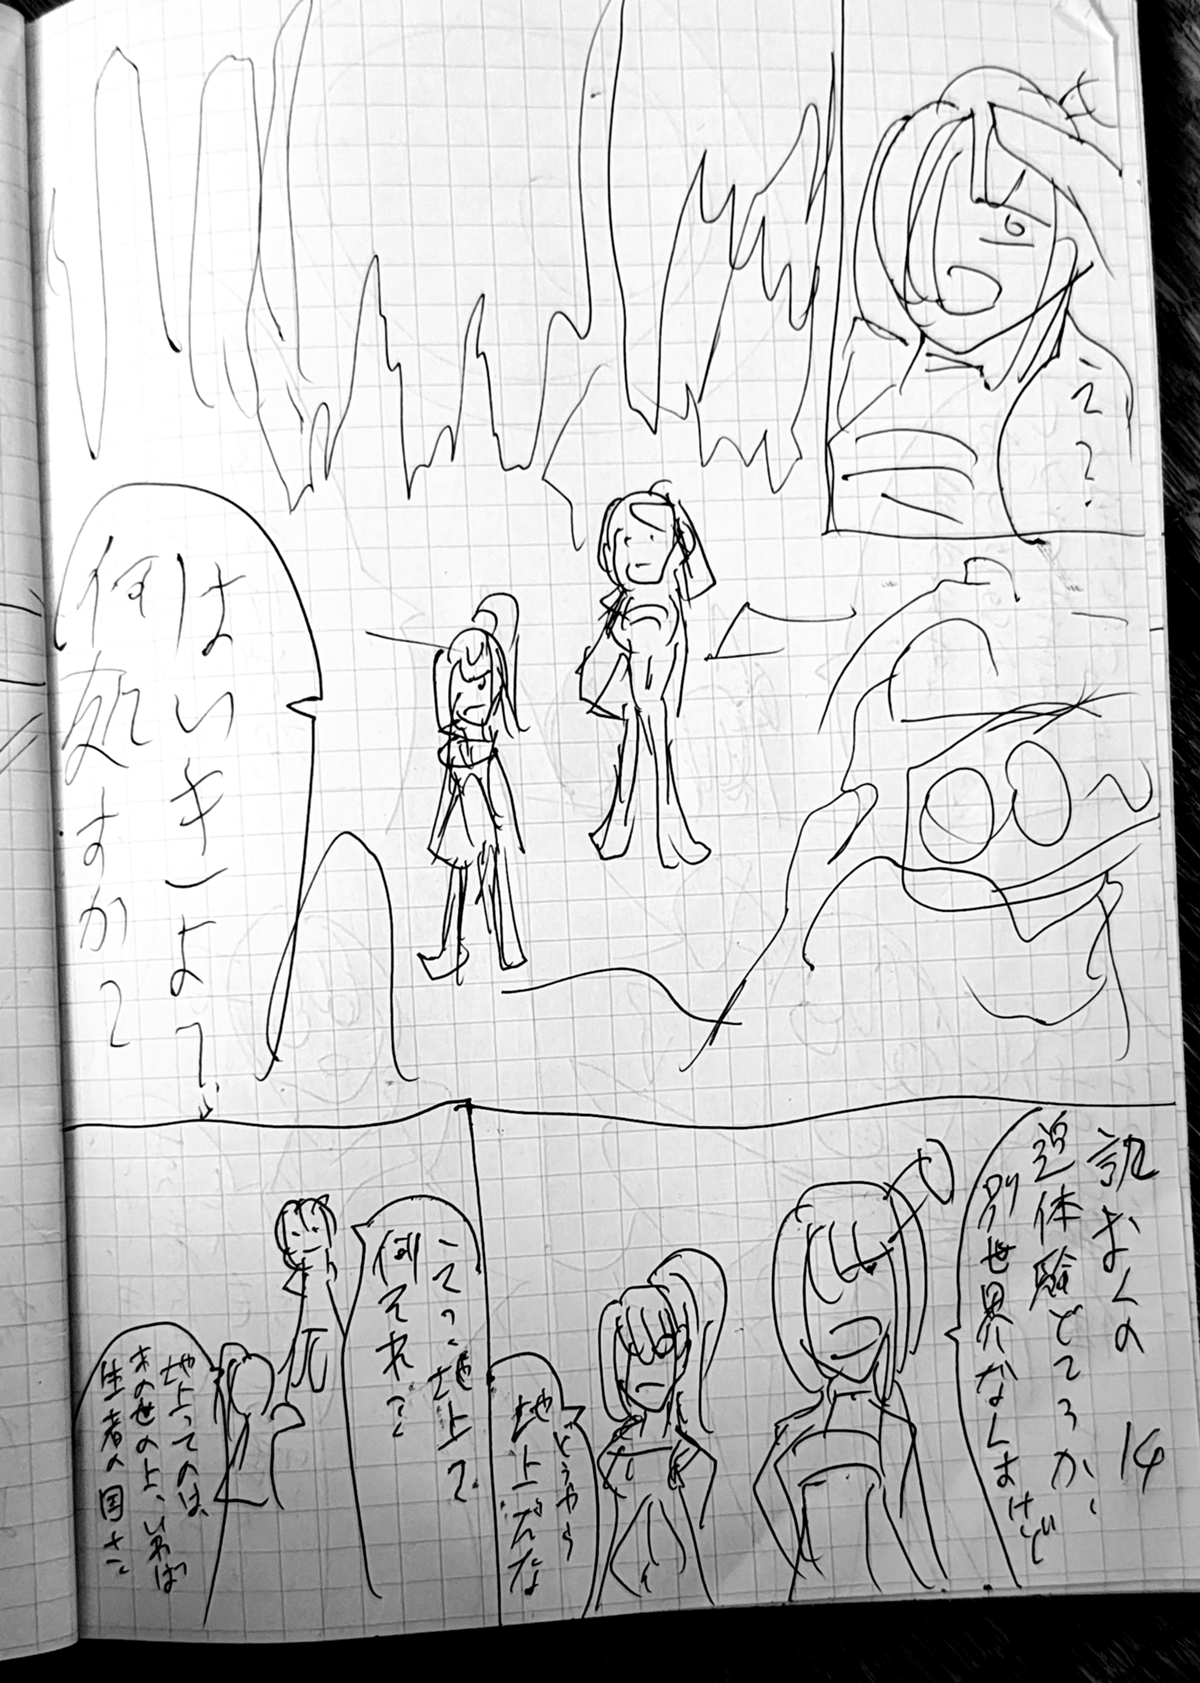 ??
はいきょ?
何処すか?
追体験どころか、
別世界なんすけど
14
どうやら
地上だな
こてっ、地上?
何それ?
地上ってのは、
あの世の上、いわば
生者の国さ